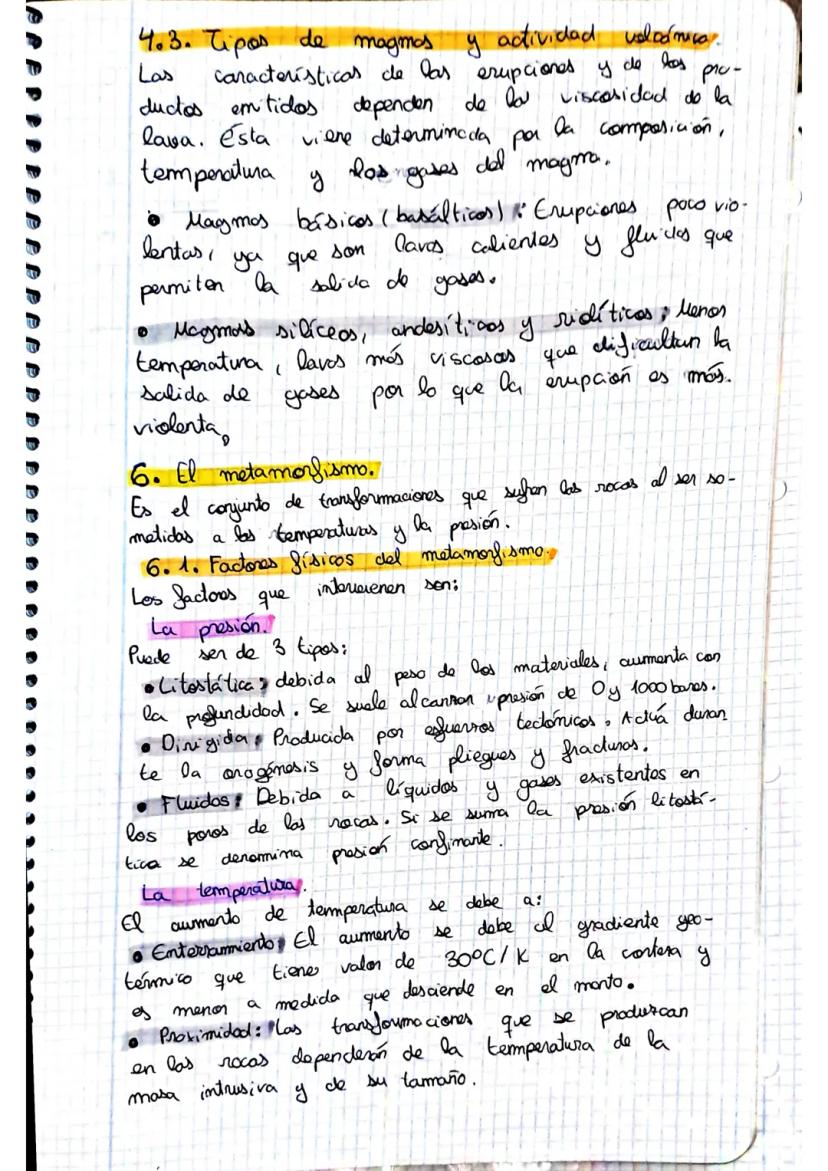 4.3. Tipos de magmas y actividad volcánica.
Las características de las erupciones y de los pro-
ductos emitidos dependen de la viscosidad de la
lava. Ésta viene determinada por la composición,
temperatura y los gases del magma.
• Magmas básicos (basálticos): Erupciones poco vio-
lentas, ya que son lavas calientes y fluidas que
permiten la salida de gases.
• Magmas silíceos, andesíticos y riolíticos: Menos
temperatura, lavas más viscosas que dificultan la
salida de gases por lo que la erupción es más.
violenta.
6. El metamorfismo.
Es el conjunto de transformaciones que sufren las rocas al ser so-
metidas a las temperaturas y la presión.
6.1. Factores físicos del metamorfismo.
Los factores que intervienen son:
La presión.
Puede ser de 3 tipos:
• Litostática: debida al peso de los materiales, aumenta con
la profundidad. Se suele alcanzar presión de 0 y 1000 bares.
• Dirigida: Producida por esfuerzos tectónicos. Actúa duran
te la orogénesis y forma pliegues y fracturas.
• Fluidos: Debida a líquidos y gases existentes en
los poros de las rocas. Si se suma la presión litostá-
tica se denomina presión confinante.
La temperatura.
El aumento de temperatura se debe a:
• Enterramiento: El aumento se debe al gradiente geo-
térmico que tiene valor de 30ºC/K en la corteza y
es menor a medida que desciende en el manto.
• Proximidad: Las transformaciones que se produzcan
en las rocas dependerán de la temperatura de la
masa intrusiva y de su tamaño.